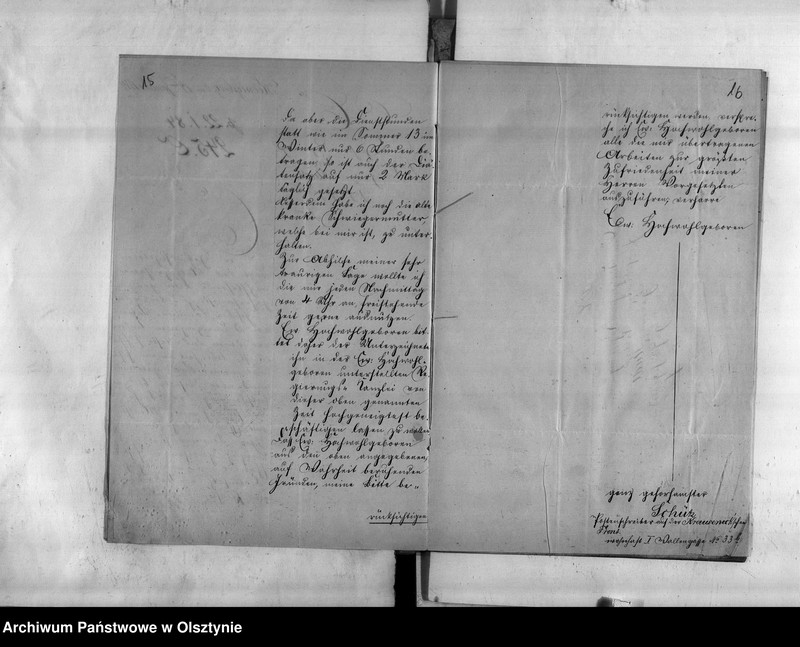 15
Da aber die Dienststunden
statt wie im Sommer 13 im
Winter nur 6 Stunden be-
tragen, so ist auch der Diä-
tensatz auf nur 2 Mark
täglich gesetzt.
Außerdem habe ich noch die alte
kranke Schwiegermutter,
welche bei mir ist, zu unter-
halten.
Zur Abhilfe meiner sehr
traurigen Lage wollte ich
die mir jeden Nachmittag
von 4 Uhr an, freistehende
Zeit gerne ausnützen.
Ew. Hochwohlgeboren bit-
tet daher der Unterzeichnete
ihn in der Ew. Hochwohl-
geboren unterstellten Re-
gierungs Kanzlei von
dieser oben genannten
Zeit hochgeneigtest be-
schäftigen lassen zu wollen
Daß Ew. Hochwohlgeboren
aus den oben angegebenen,
auf Wahrheit beruhenden
Gründen, meine Bitte be-
rücksichtigen
16
rücksichtigen werden, verspre-
che ich Ew. Hochwohlgeboren
alle die mir übertragenen
Arbeiten zur größten
Zufriedenheit meiner
Herren Vorgesetzten
auszuführen, verharre
Ew. Hochwohlgeboren
ganz gehorsamster
Schütz
auf der
wohnhaft I Wallengasse № 33
Archiwum Państwowe w Olsztynie